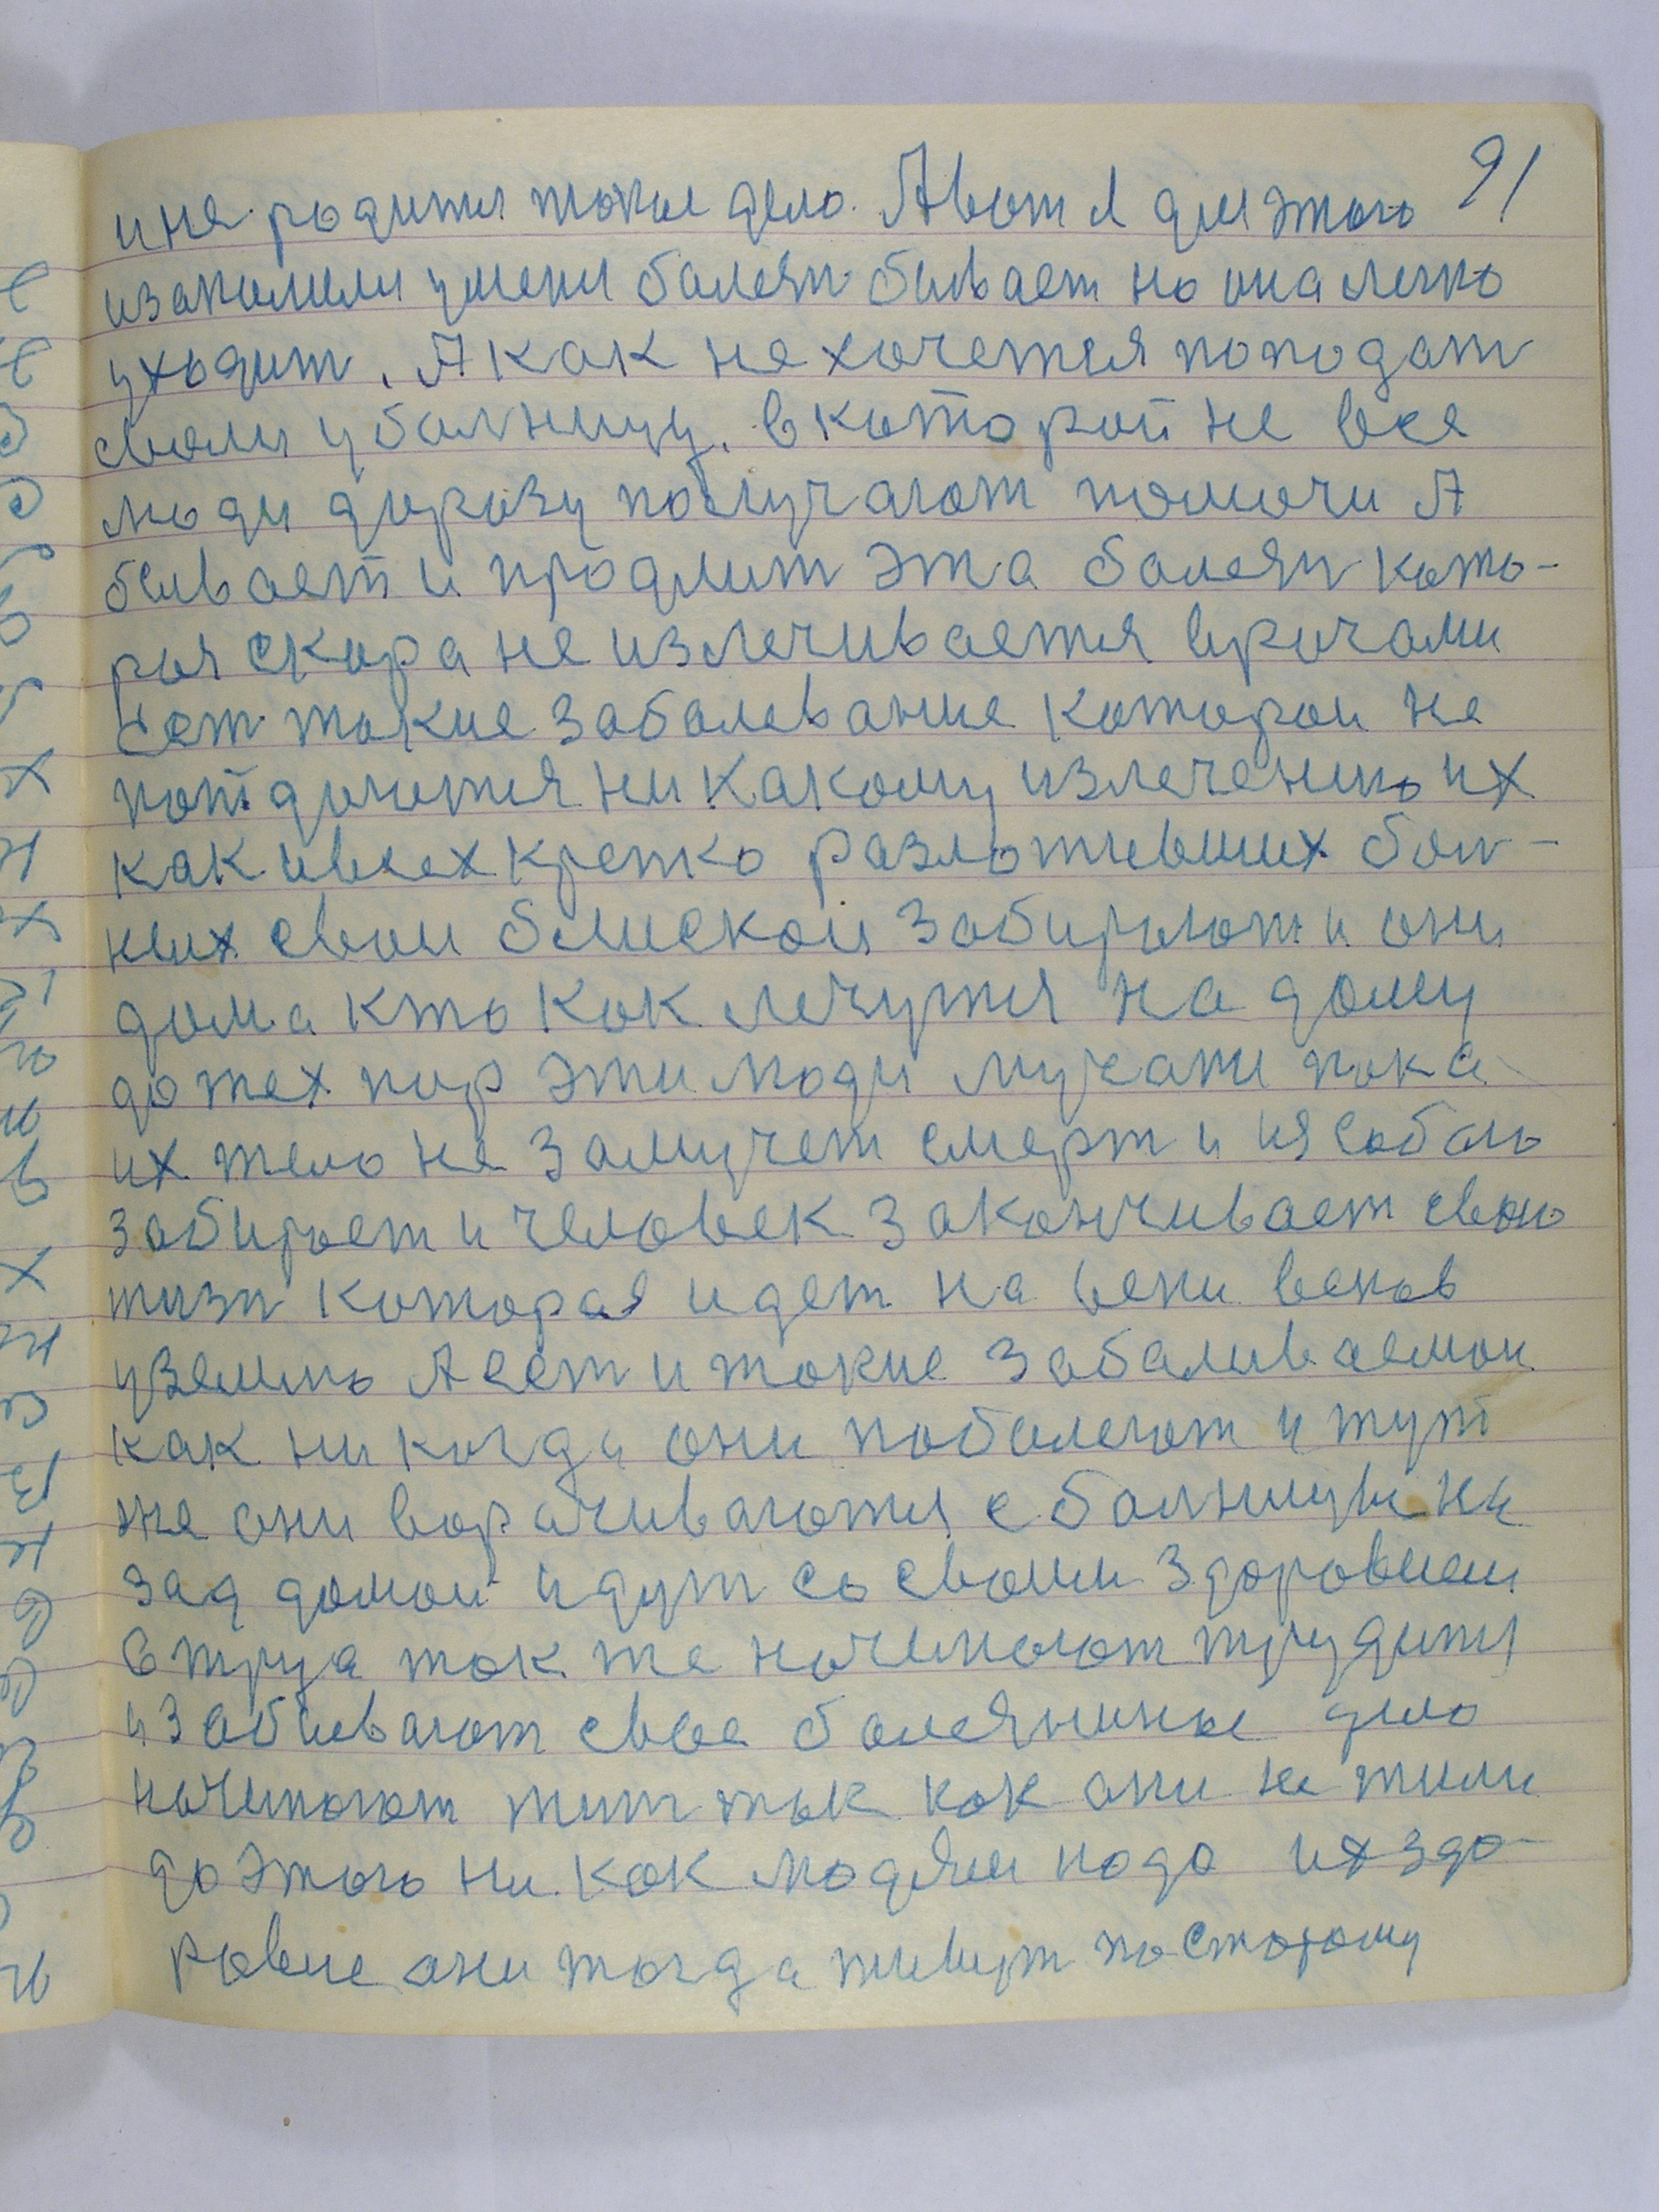 91
и не родится токое дело. А вот я для этого
изакалили умени балезн бывает но она легко
уходит. А как не хочется поподат
своем у балницу. в которой не все
люди дорозу получают помочи А
бывает и продлит эта балезн кото-
роя скора не излечивается врочами
Ест токие заболевание которои не
потдоются ни какому излечению их
как и всех крепко разложившихся бол-
ных свои блискои забирают и они
дома кто как лечутся на дому
до тех пор эти люди мучатся пока
их тело не замучет смерт и ия собою
забирает и человек заканчивает свою
жизн которая идет на веки веков
уземлю А ест и токие забаливаемои
как ни когда они поболеют и тут
же они ворачиваются с балницы на
зад домои идут со своим здоровием
с труда ток же начинают трудится
и забывают свое болезниное дело
начинают жит так как они не жили
до этого ни как людям надо их здо-
ровие они тогда живут по старому